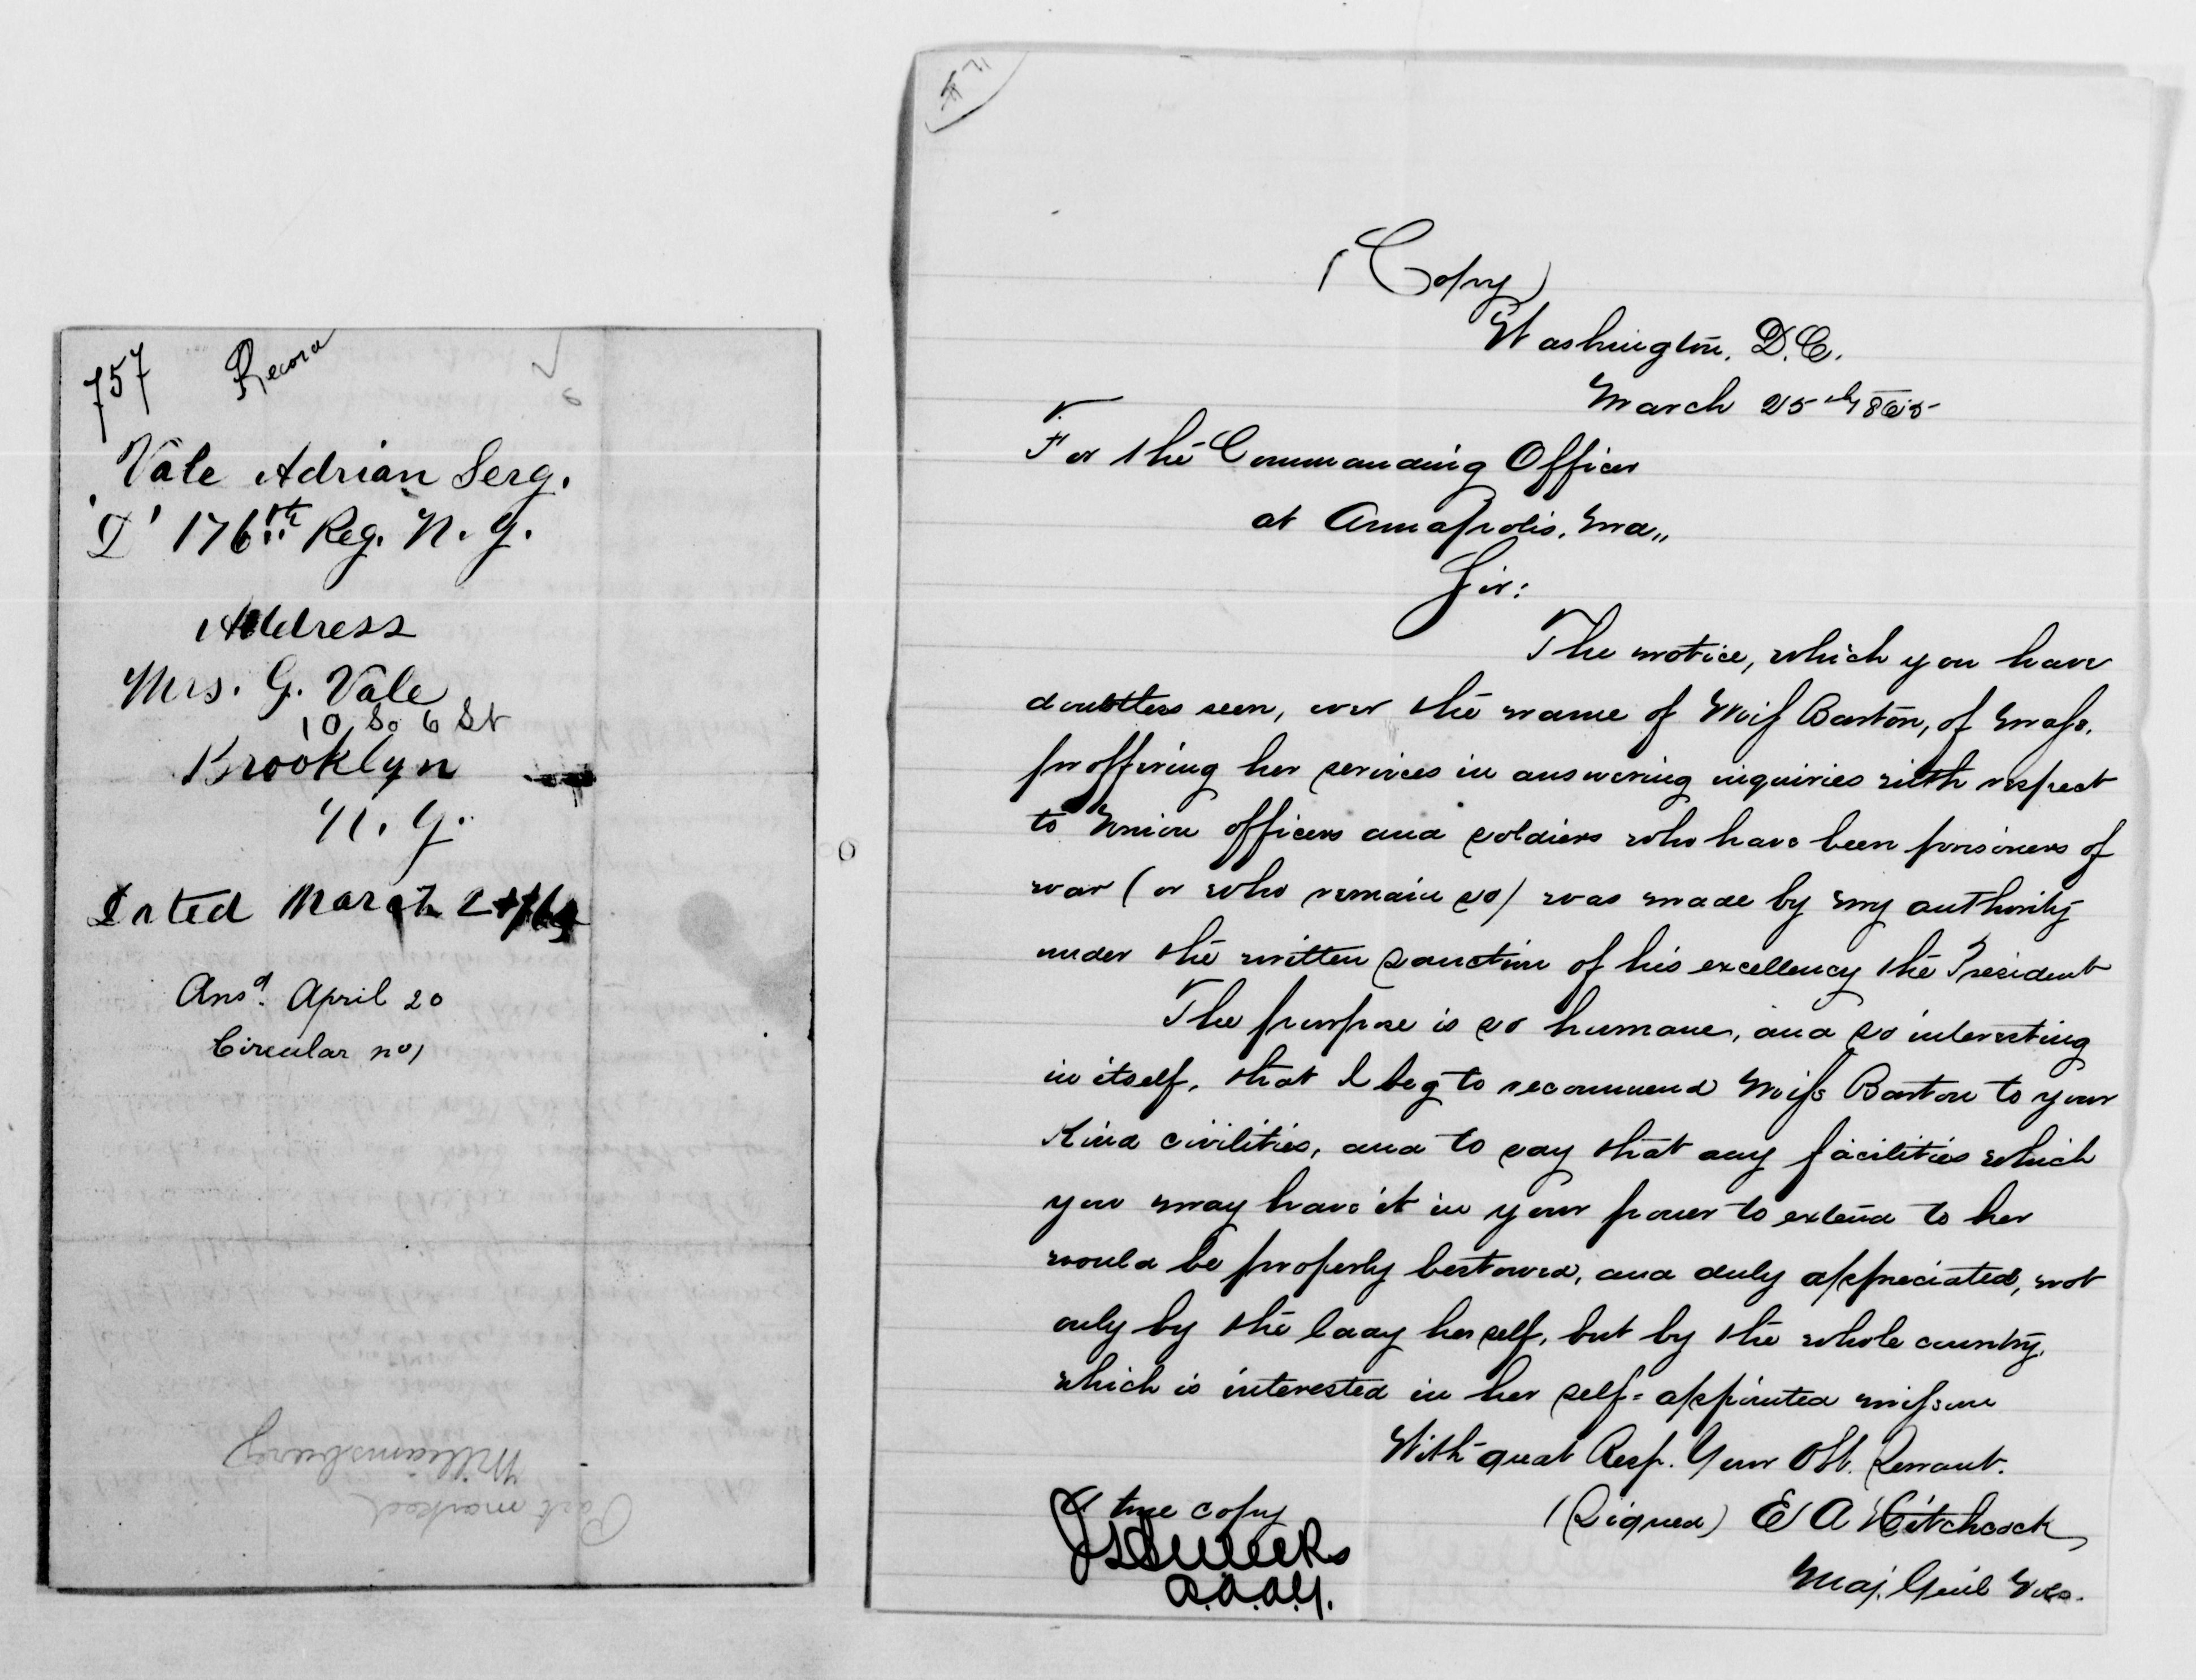 757 Record
Vale Adrian Serg.
'D' 176th Reg. N. Y.
Address
Mrs. G. Vale
10 So 6 St
Brooklyn
N. Y.
Dated March
Ansd. April 20
Circular no 1
Post marked
Williamsburg
(Copy)
Washington, D.C.
March 25th 1865
For the Commanding Officer
at Annapolis, Md,,
Sir:
The notice, which you have
doubtless seen, over the name of Miss Barton, of Mass.
proffering her services in answering inquiries with respect
to Union officers and soldiers who have been prisoners of
war (or who remain so) was made by my authority
under the written sanction of his excellency the President
The purpose is so humane, and so interesting
in itself, that I beg to recommend Miss Barton to your
kind civilities, and to say that any facilities which
you may have it in your power to extend to her
would be properly bestowed, and duly appreciated, not
only by the lady herself, but by the whole country,
which is interested in her self=appointed mission
With great Resp. Your Obt. Servant.
(Signed) E A Hitchcock
Maj. Genl Vols.
A true copy
A.A.A.G.